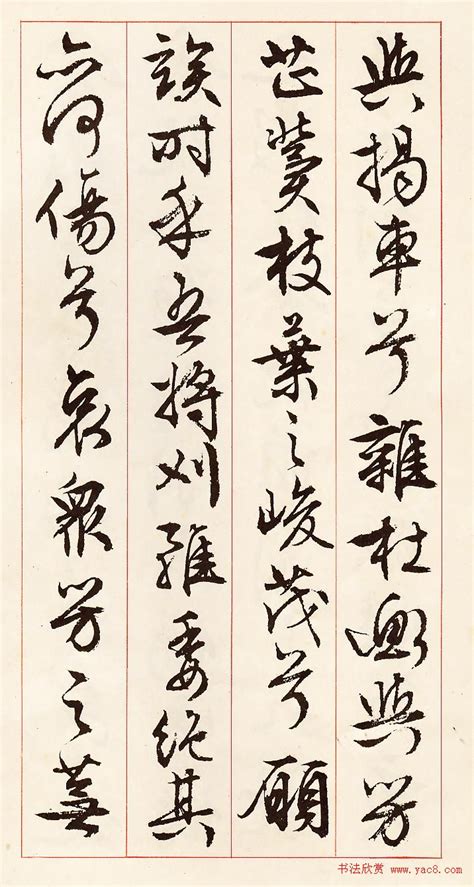 與揭車兮雜杜衡與芳
芷冀枝葉之峻茂兮願
竢时乎吾將刈雖委絶其
亦何傷兮哀眾芳之蕪
书法欣赏 www.yac8.com